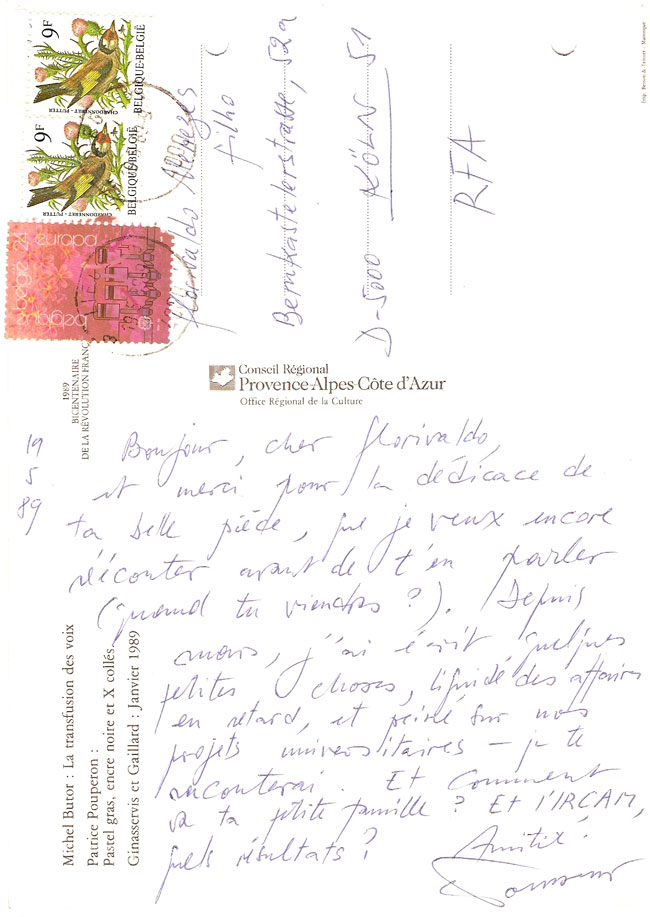 9F
BELGIQUE-BELGIË
CHARDONNERET - PUTTER
9F
BELGIQUE-BELGIË
CHARDONNERET - PUTTER
europa
belgië
belgique
Florivaldo Menezes
Filho
Bernkastelerstrasse, 52a
D-5000 KÖLN 51
RFA
1989
BICENTENAIRE
DE LA RÉVOLUTION FRANÇ
Conseil Régional
Provence-Alpes-Côte d'Azur
Office Régional de la Culture
19
5
89
Bonjour, cher Florivaldo,
et merci pour la dédicace de
ta belle pièce, que je veux encore
réécouter avant de t'en parler
(quand tu viendras ?). Depuis
mars, j'ai écrit quelques
petites choses, liquidé des affaires
en retard, et peiné sur nos
projets universitaires — je te
raconterai. Et comment
va ta petite famille ? Et l'IRCAM,
quels résultats ?
Amitié !
Pousseur
Michel Butor : La transfusion des voix
Patrice Pouperon :
Pastel gras, encre noire et X collés.
Ginasservis et Gaillard : Janvier 1989